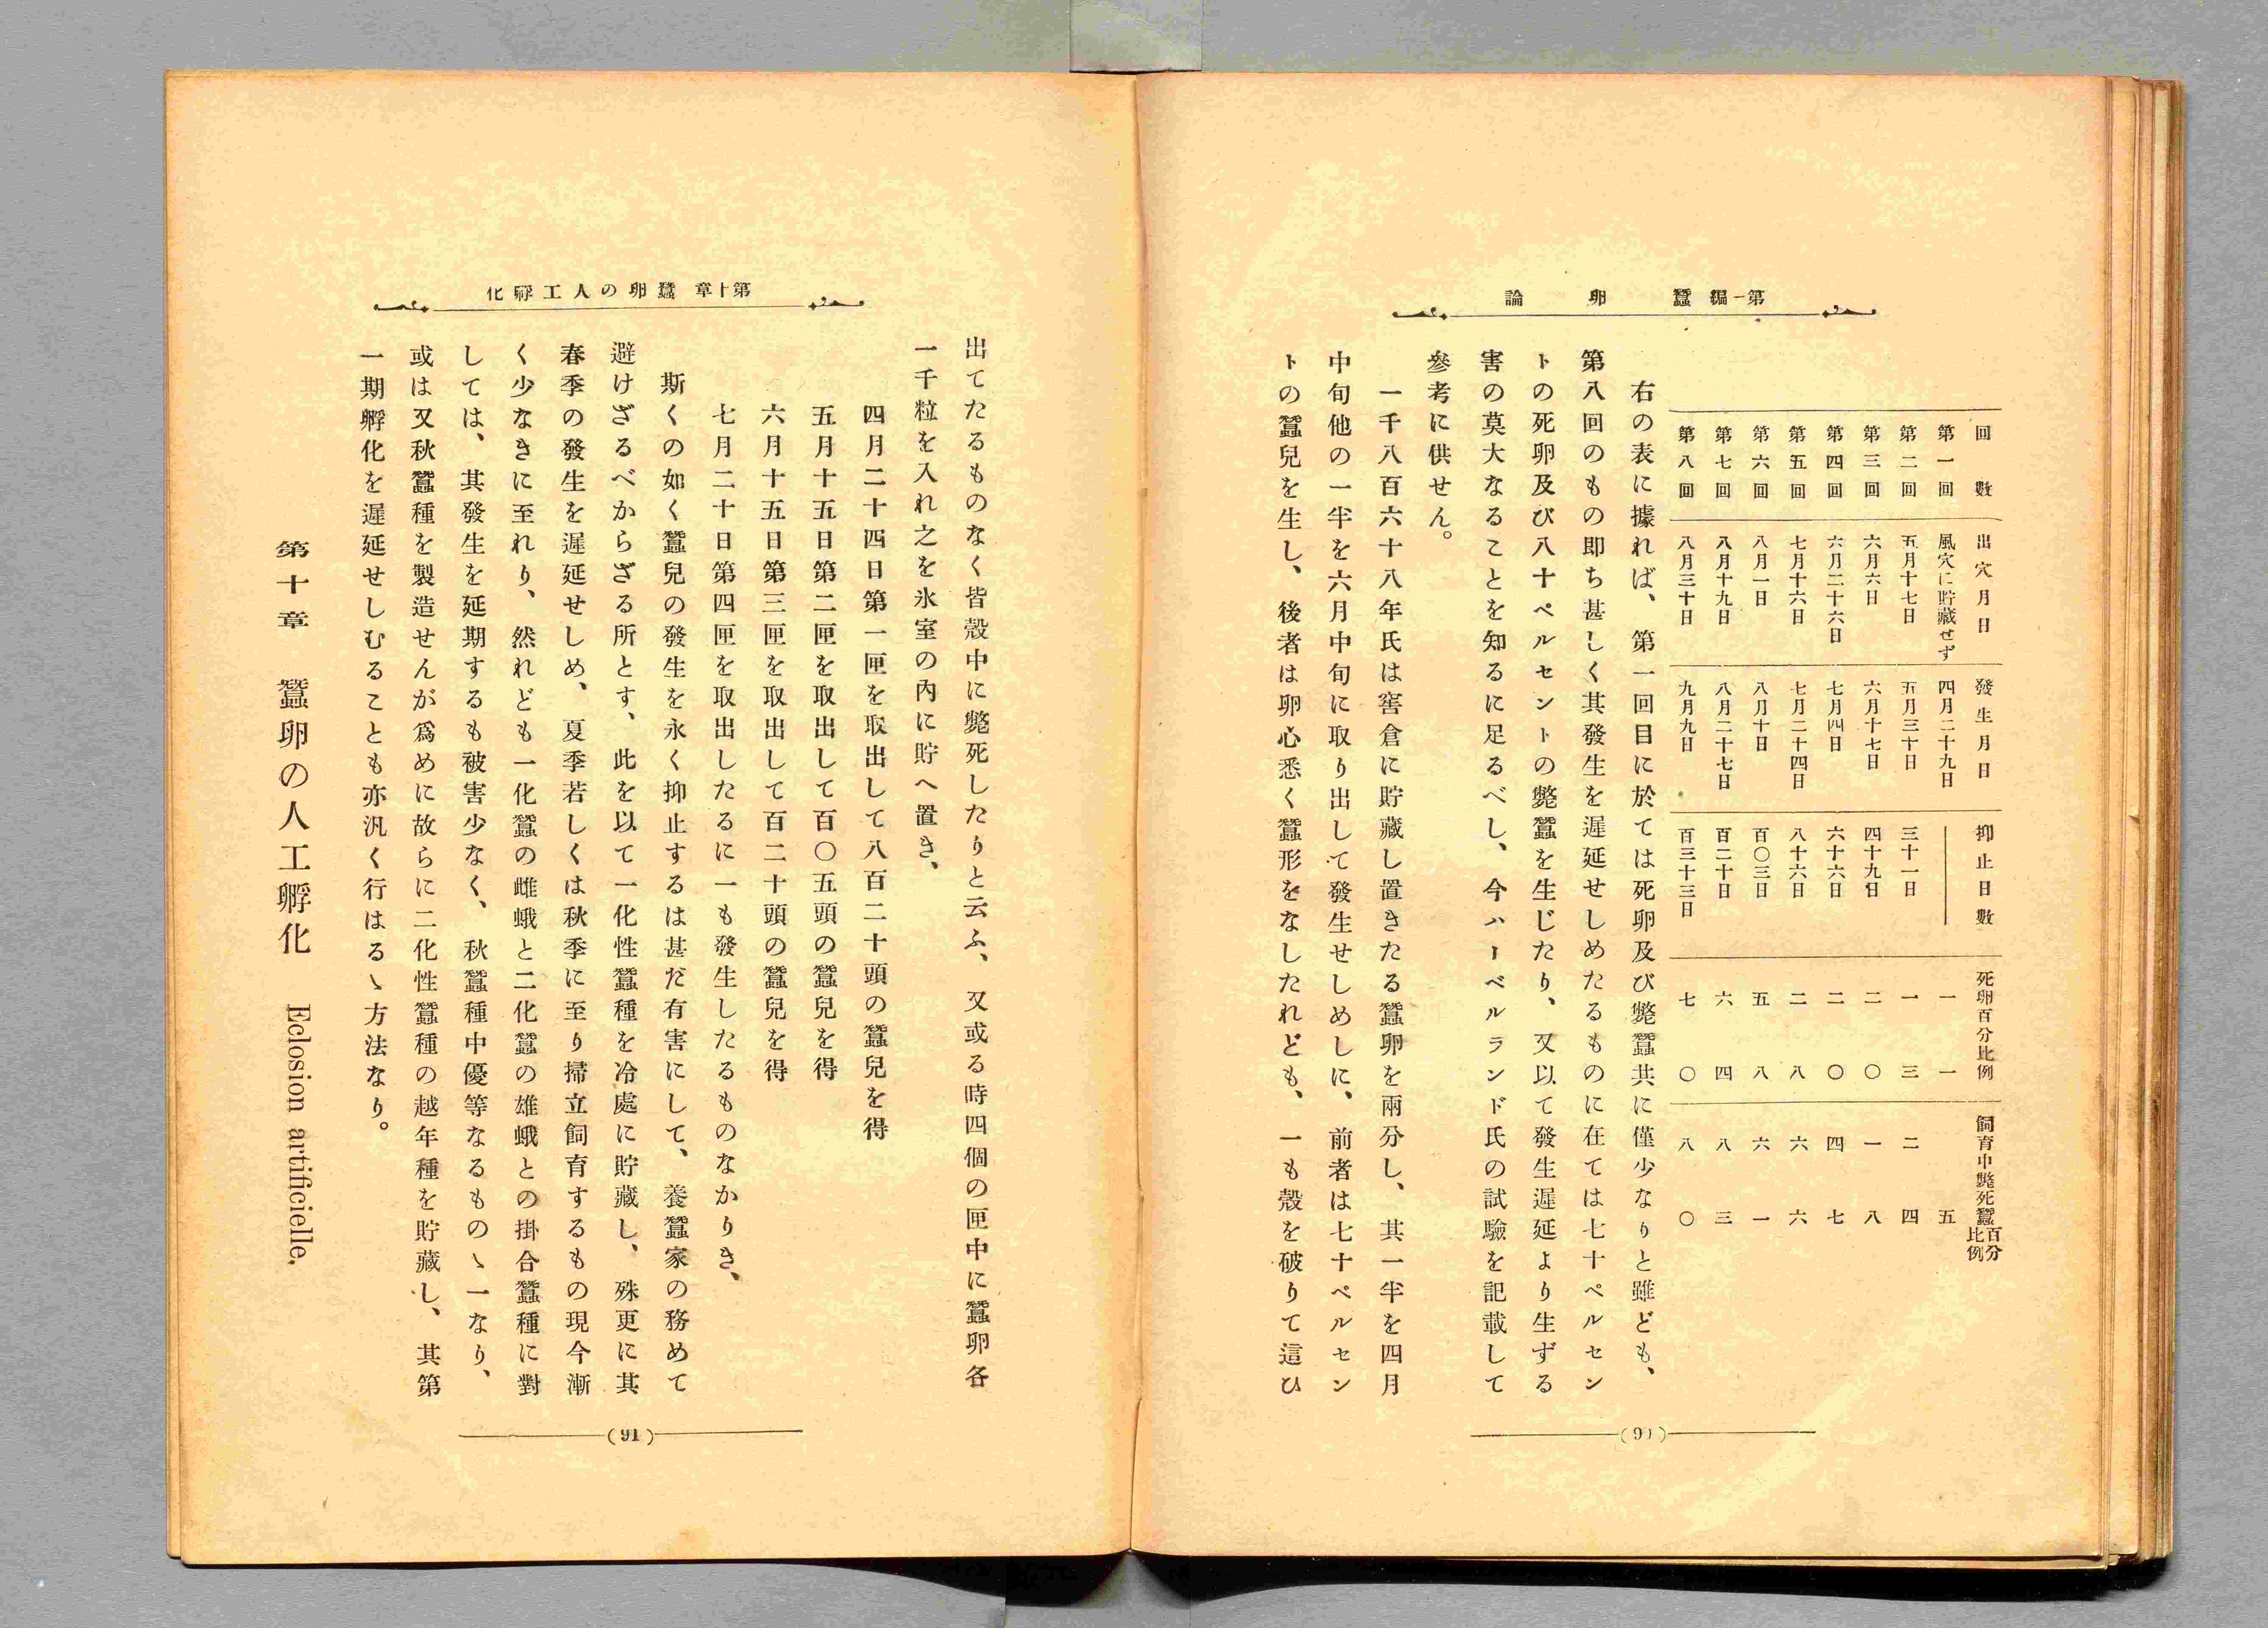 第一編 蠶卵論
回數 出穴月日 發生月日 抑止日數 死卵百分比例 飼育中斃死蠶百分比例
第一回 風穴に貯藏せず 四月二十九日 ― 一一 五
第二回 五月十七日 五月三十日 三十一日 一三 二四
第三回 六月六日 六月十七日 四十九日 二〇 一八
第四回 六月二十六日 七月四日 六十六日 二〇 四七
第五回 七月十六日 七月二十四日 八十六日 二八 六六
第六回 八月一日 八月十日 百〇三日 五八 六一
第七回 八月十九日 八月二十七日 百二十日 六四 八三
第八回 八月三十日 九月九日 百三十三日 七〇 八〇
右の表に據れば、第一回目に於ては死卵及び斃蠶共に僅少なりと雖ども、
第八回のもの即ち甚しく其發生を遲延せしめたるものに在ては七十ペルセン
トの死卵及び八十ペルセントの斃蠶を生じたり、又以て發生遲延より生ずる
害の莫大なることを知るに足るべし、今ハーベルランド氏の試驗を記載して
參考に供せん。
一千八百六十八年氏は窖倉に貯藏し置きたる蠶卵を兩分し、其一半を四月
中旬他の一半を六月中旬に取り出して發生せしめしに、前者は七十ペルセン
トの蠶兒を生し、後者は卵心悉く蠶形をなしたれども、一も殼を破りて這ひ
(90)
第十章 蠶卵の人工孵化
出てたるものなく皆殼中に斃死したりと云ふ、又或る時四個の匣中に蠶卵各
一千粒を入れ之を氷室の內に貯へ置き、
四月二十四日第一匣を取出して八百二十頭の蠶兒を得
五月十五日第二匣を取出して百〇五頭の蠶兒を得
六月十五日第三匣を取出して百二十頭の蠶兒を得
七月二十日第四匣を取出したるに一も發生したるものなかりき、
斯くの如く蠶兒の發生を永く抑止するは甚だ有害にして、養蠶家の務めて
避けざるべからざる所とす、此を以て一化性蠶種を冷處に貯藏し、殊更に其
春季の發生を遲延せしめ、夏季若しくは秋季に至り掃立飼育するもの現今漸
く少なきに至れり、然れども一化蠶の雌蛾と二化蠶の雄蛾との掛合蠶種に對
しては、其發生を延期するも被害少なく、秋蠶種中優等なるものヽ一なり、
或は又秋蠶種を製造せんが爲めに故らに二化性蠶種の越年種を貯藏し、其第
一期孵化を遲延せしむることも亦汎く行はるヽ方法なり。
第十章 蠶卵の人工孵化 Eclosion artificielle.
(91)